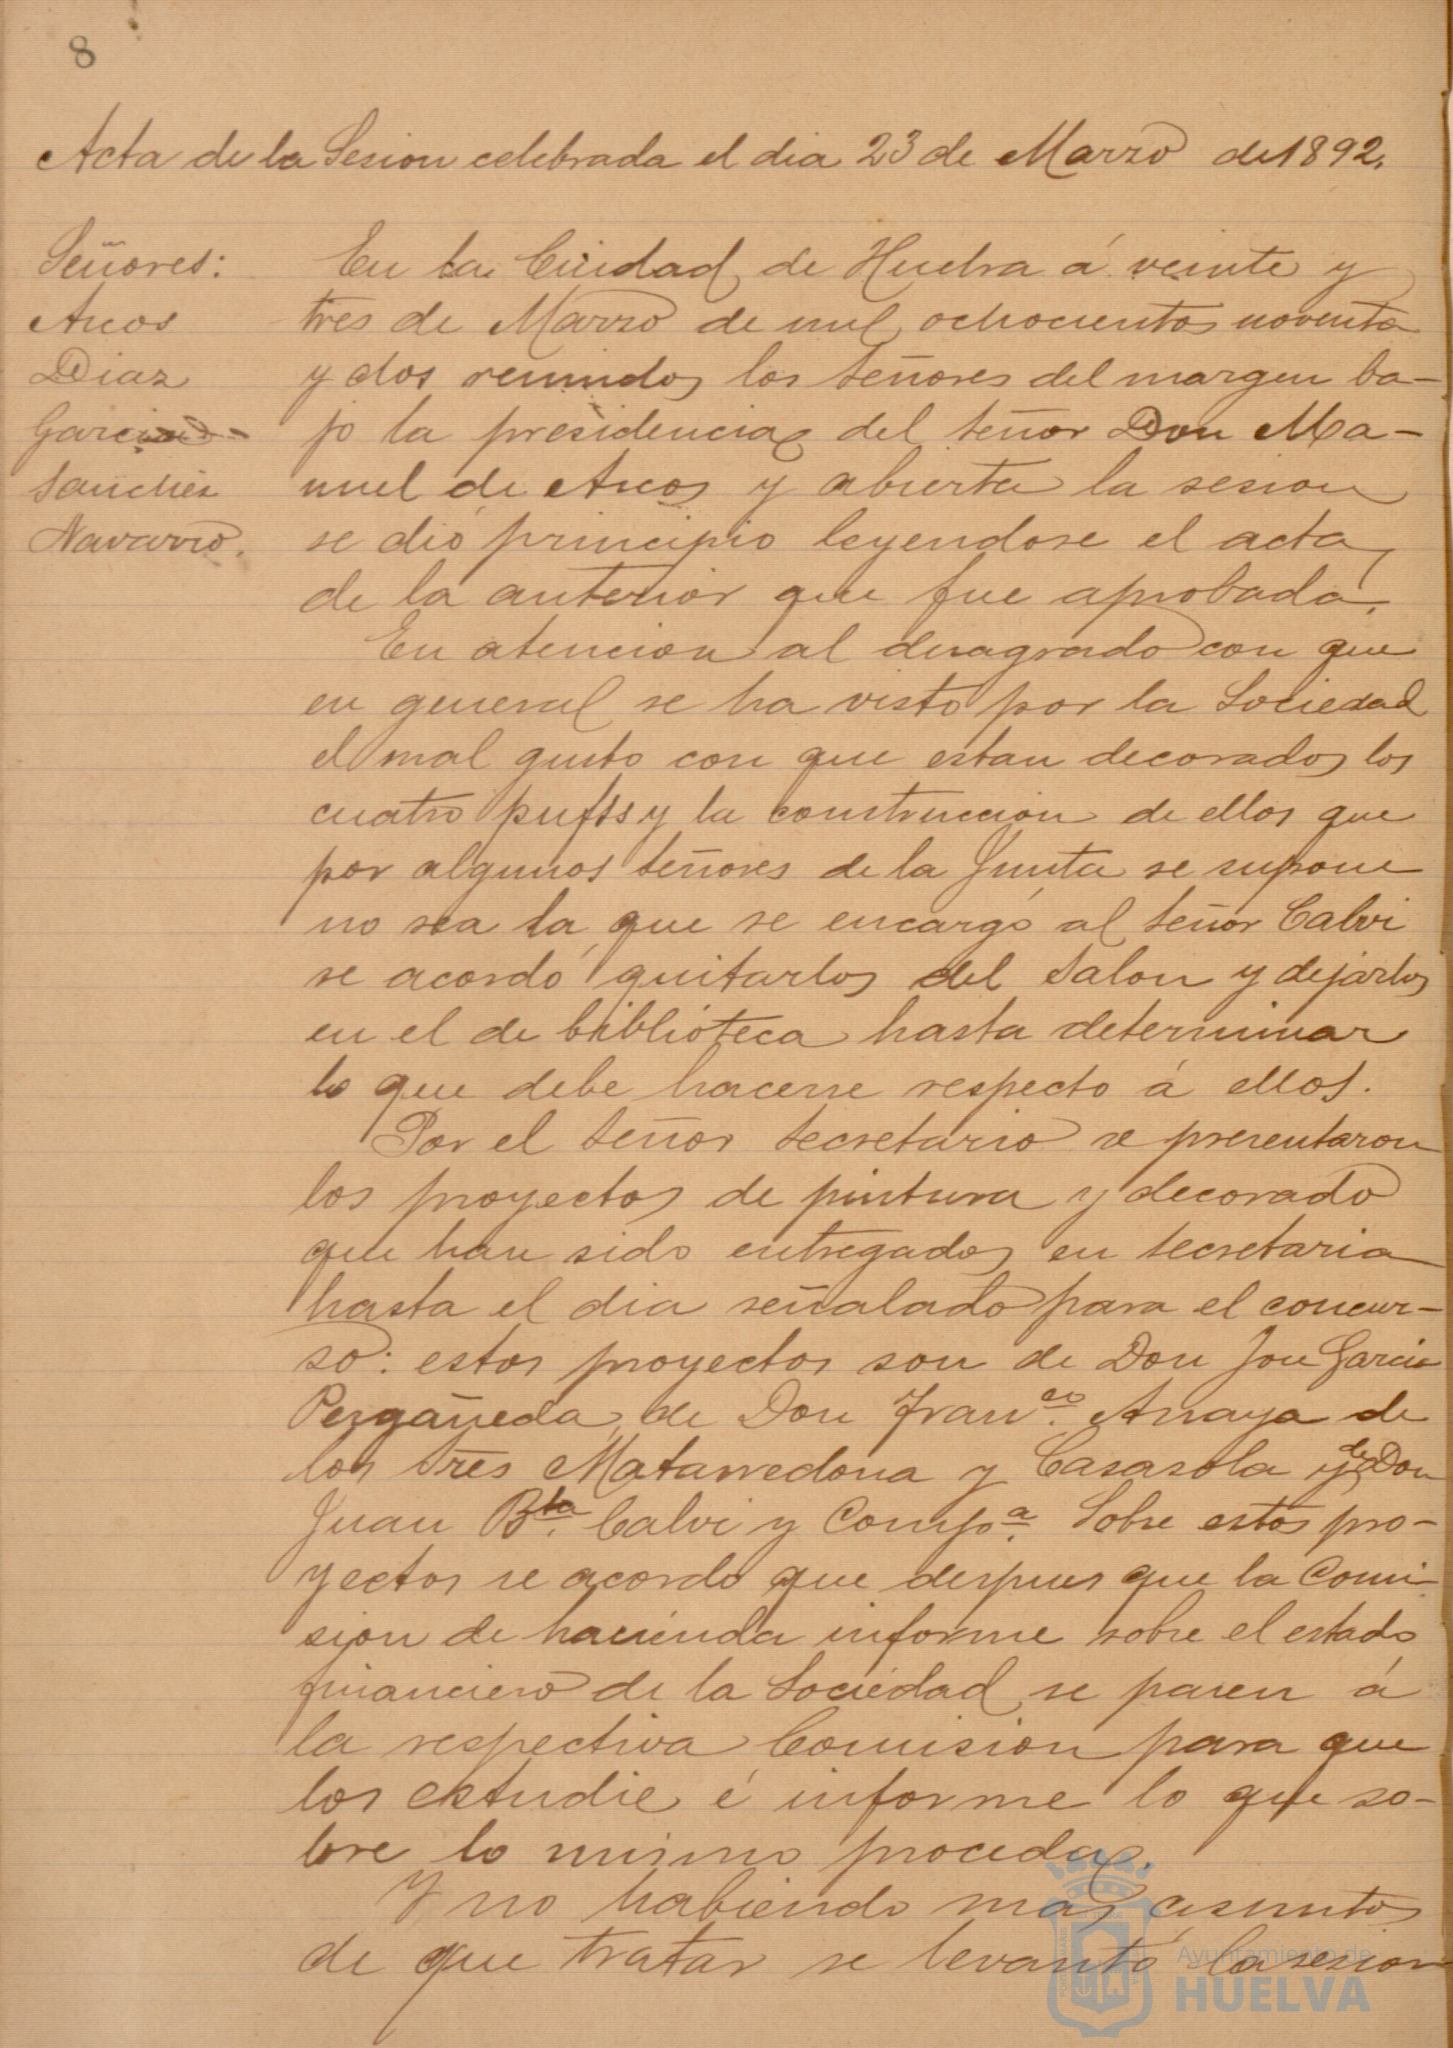 8
Acta de la Sesion celebrada el dia 23 de Marzo de 1892.
Señores:
Arcos
Diaz
Garcia
Sanchez
Navarro.
En la Ciudad de Huelva á veinte y
tres de Marzo de mil ochocientos noventa
y dos reunidos los señores del margen ba-
jo la presidencia del señor Don Ma-
nuel de Arcos y abierta la sesion
se dió principio leyendose el acta
de la anterior que fue aprobada.
En atencion al desagrado con que
en general se ha visto por la Sociedad
el mal gusto con que estan decorados los
cuatro puffs y la construccion de ellos que
por algunos señores de la Junta se supone
no sea la que se encargó al señor Calvi
se acordó quitarlos del salon y dejarlos
en el de biblioteca hasta determinar
lo que debe hacerse respecto á ellos.
Por el señor secretario se presentaron
los proyectos de pintura y decorado
que han sido entregados en secretaria
hasta el dia señalado para el concur-
so: estos proyectos son de Don José Garcia
de Don Franco. Anaya de
los tres Matarredona y Casasola y de Don
Juan Bta. Calvi y Compa. Sobre estos pro-
yectos se acordo que despues que la Comi-
sion de hacienda informe sobre el estado
financiero de la Sociedad se pasen á
la respectiva Comision para que
los estudie é informe lo que so-
bre lo mismo proceda.
Y no habiendo mas asuntos
de que tratar se levantó la sesion
Ayuntamiento de
HUELVA